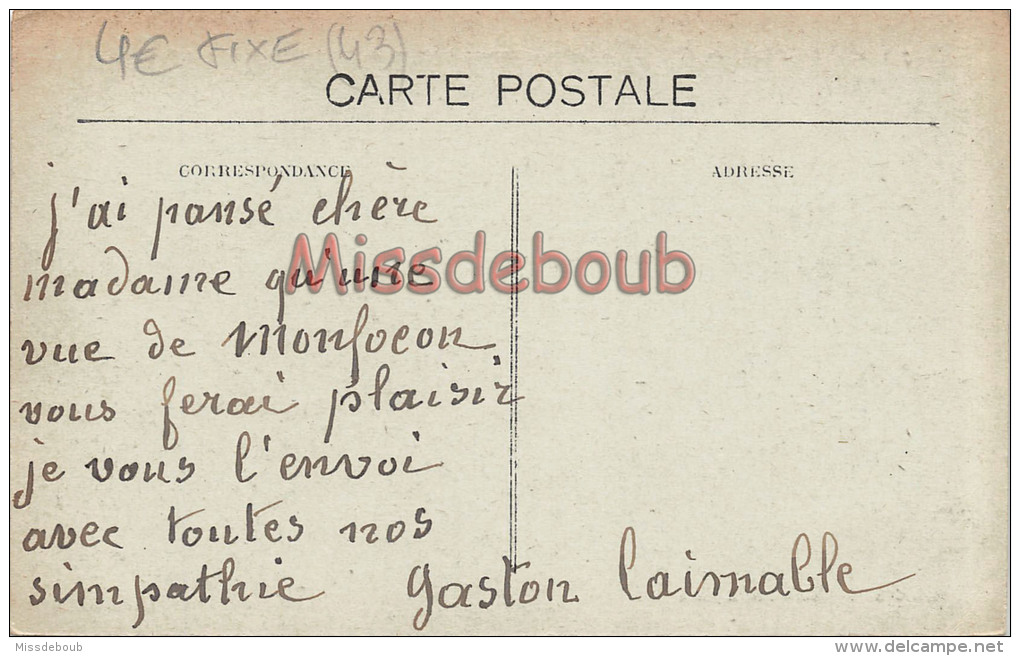 4€ FIXE (43)
CARTE POSTALE
CORRESPONDANCE
ADRESSE
j'ai pansé chère
madame qu'une
vue de Monfocon
vous ferai plaisir
je vous l'envoi
avec toutes nos
simpathie Gaston Laimable
Missdeboub
Missdeboub
www.delcampe.net